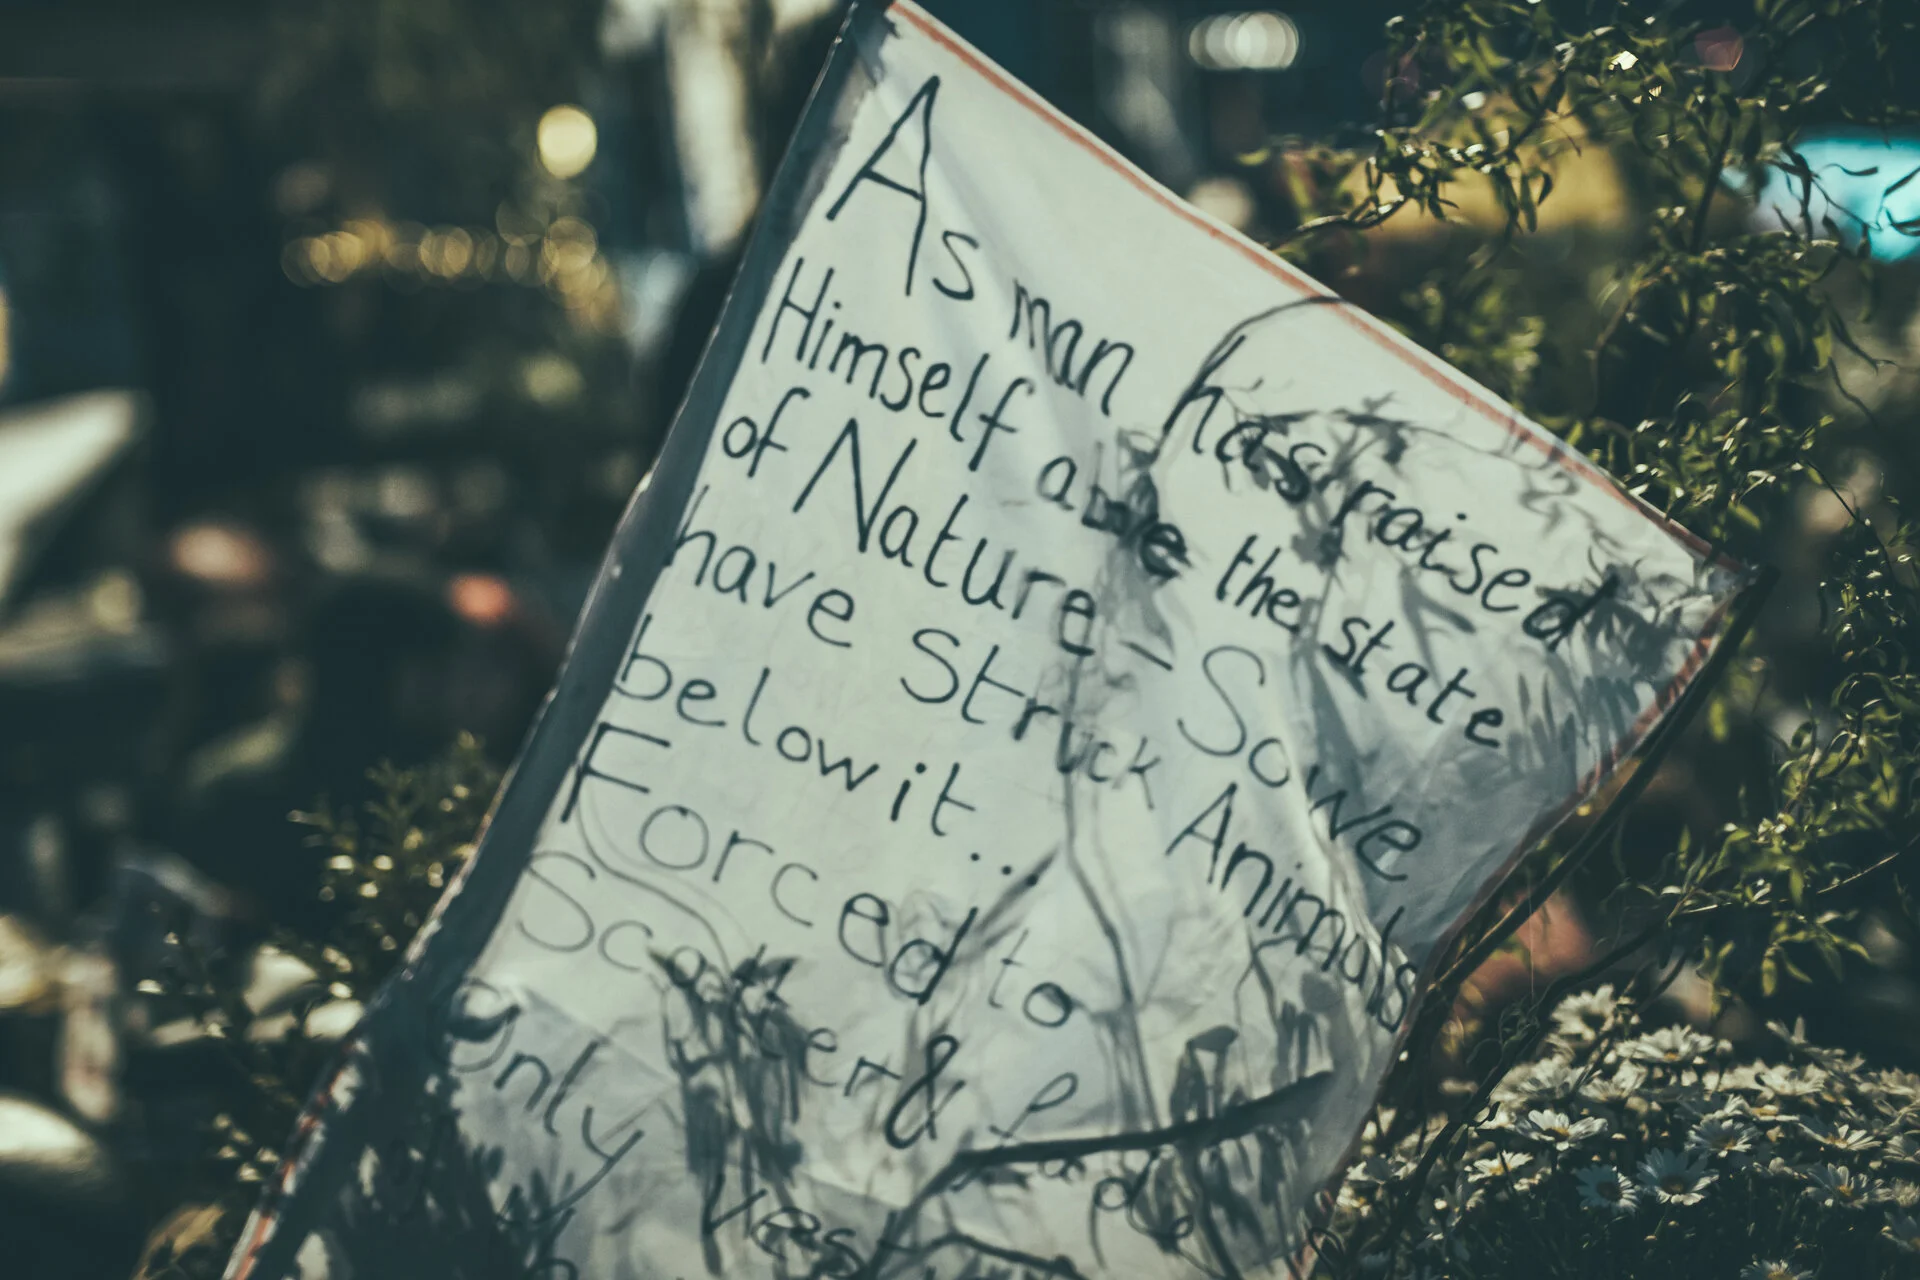 As man has raised
Himself above the state
of Nature - So we
have Struck Animals
below it...
Forced to
Scatter &
only